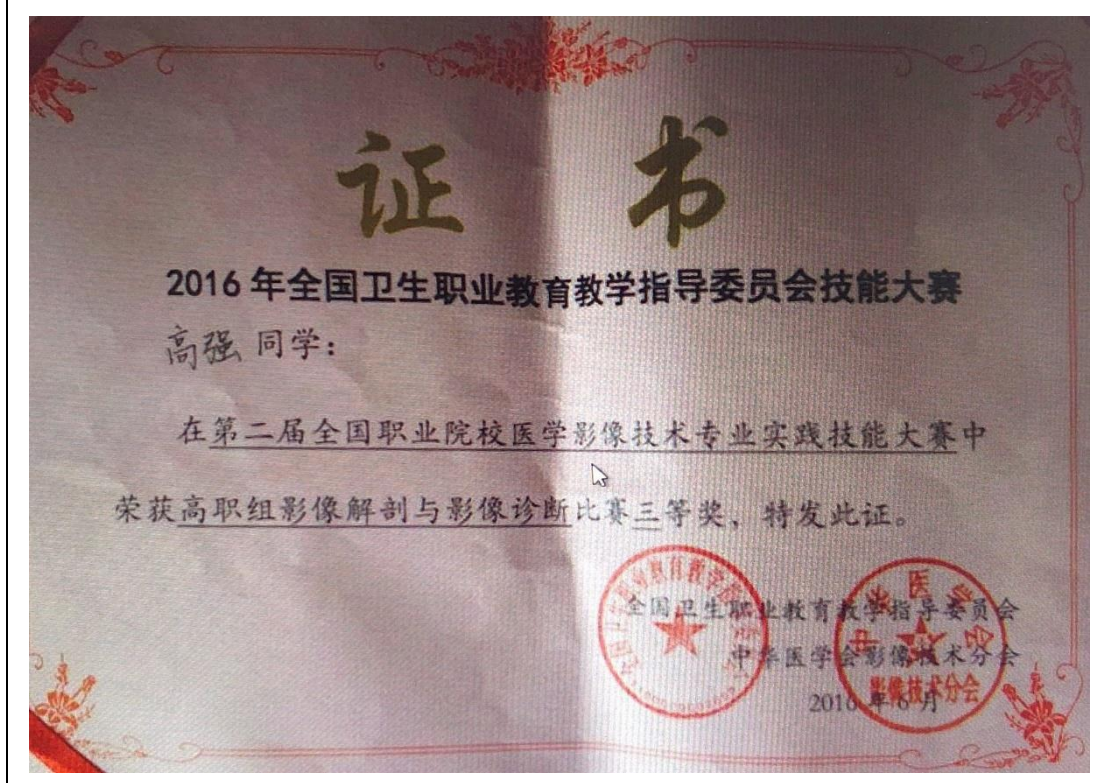 证 书
2016年全国卫生职业教育教学指导委员会技能大赛
高强 同学：
在第二届全国职业院校医学影像技术专业实践技能大赛中
荣获高职组影像解剖与影像诊断比赛三等奖，特发此证。
全国卫生职业教育教学指导委员会
中华医学会影像技术分会
2016年6月
中华医学会
影像技术分会